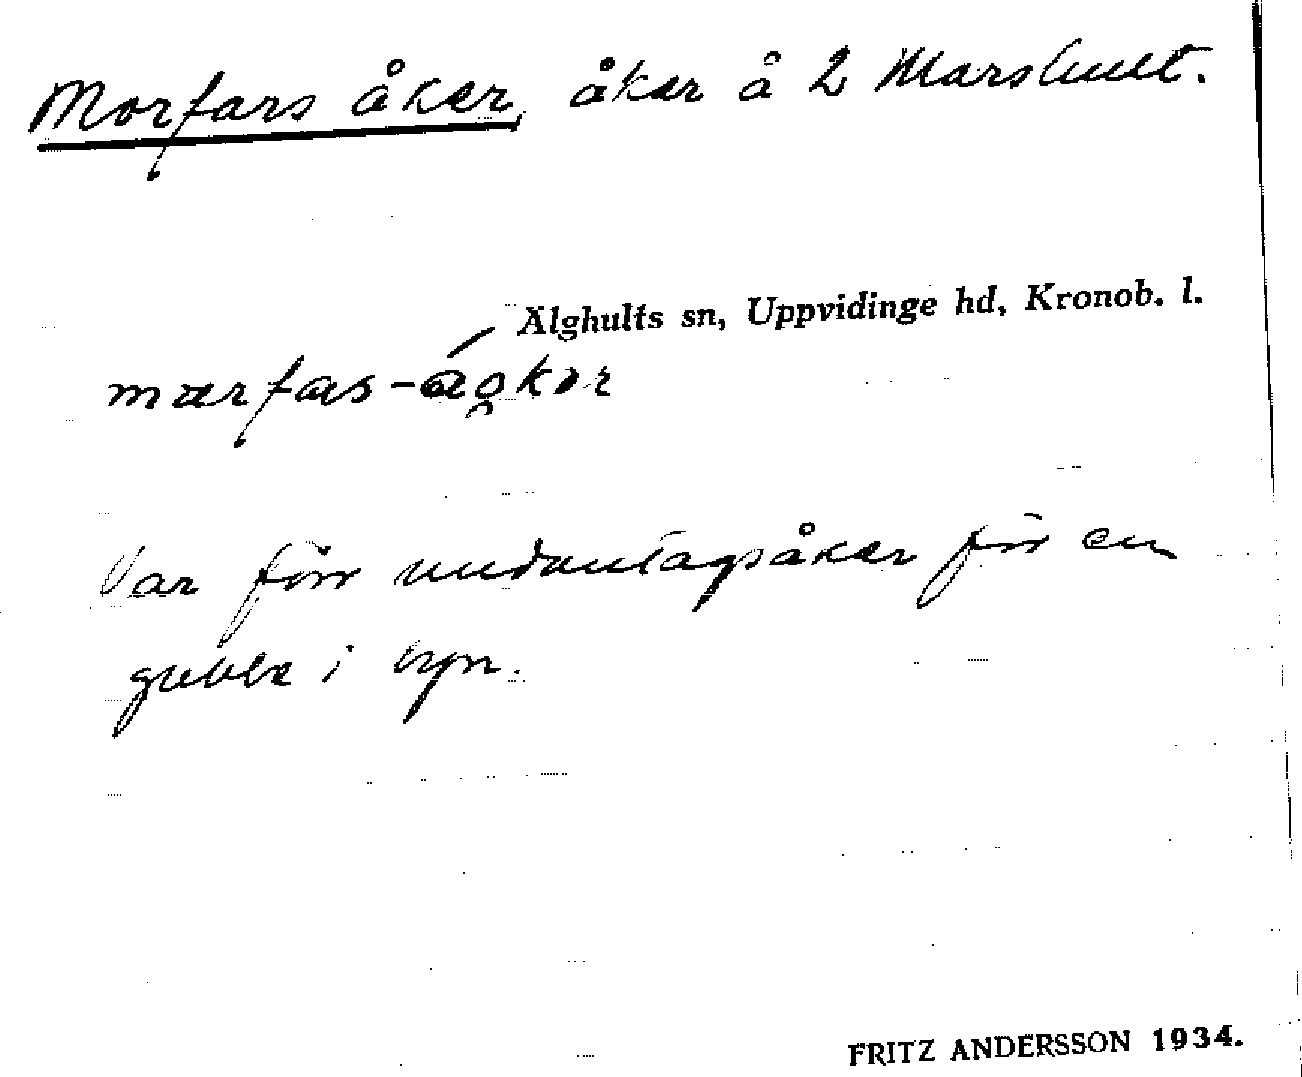 Morfars åker, åker å 2 Marshult.
Älghults sn, Uppvidinge hd, Kronob. l.
Var förr undantagsåker för en
gubbe i byn.
FRITZ ANDERSSON 1934.